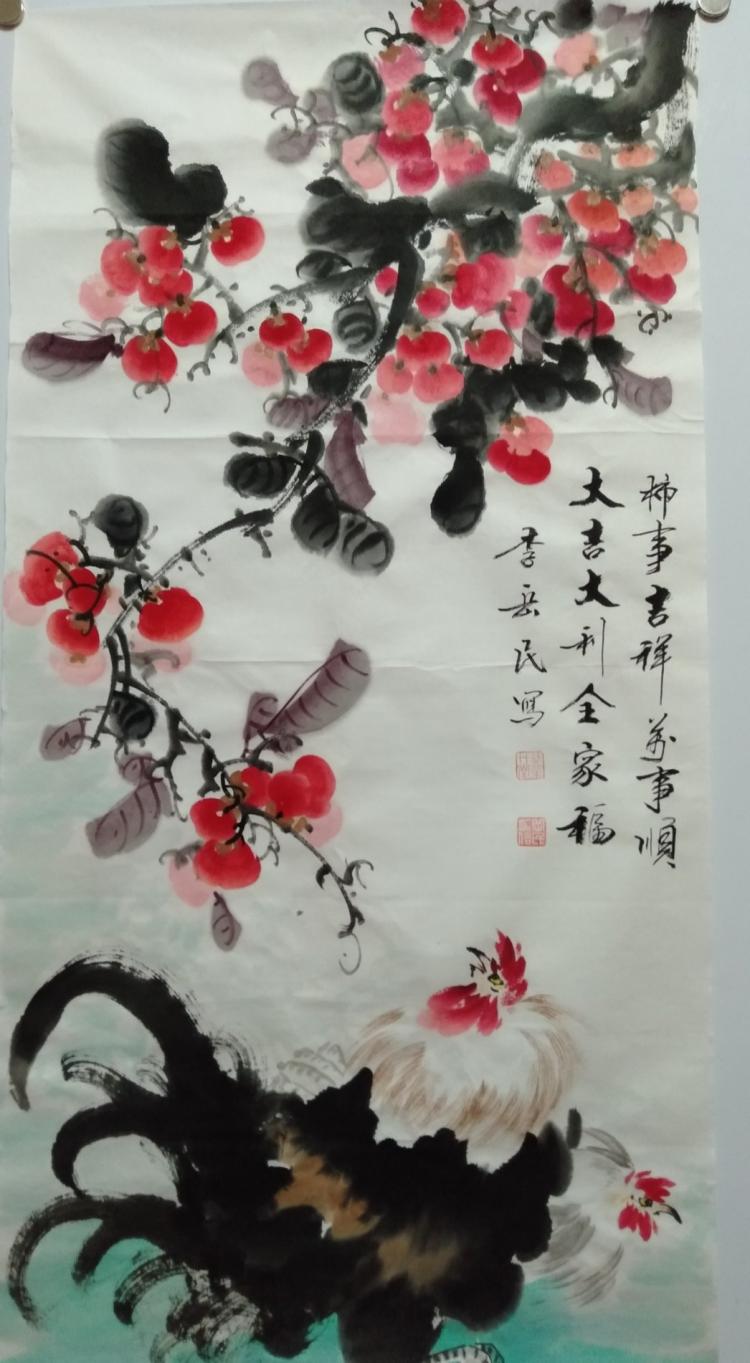 柿事吉祥万事順
大吉大利全家福
李岳民寫